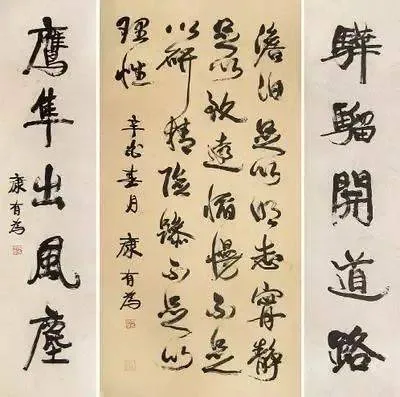 驊騮開道路
澹泊足以明志寧靜
足以致遠慆慢不足
以研精險躁不足以
理性 辛春月 康有為
鷹隼出風塵
康有為